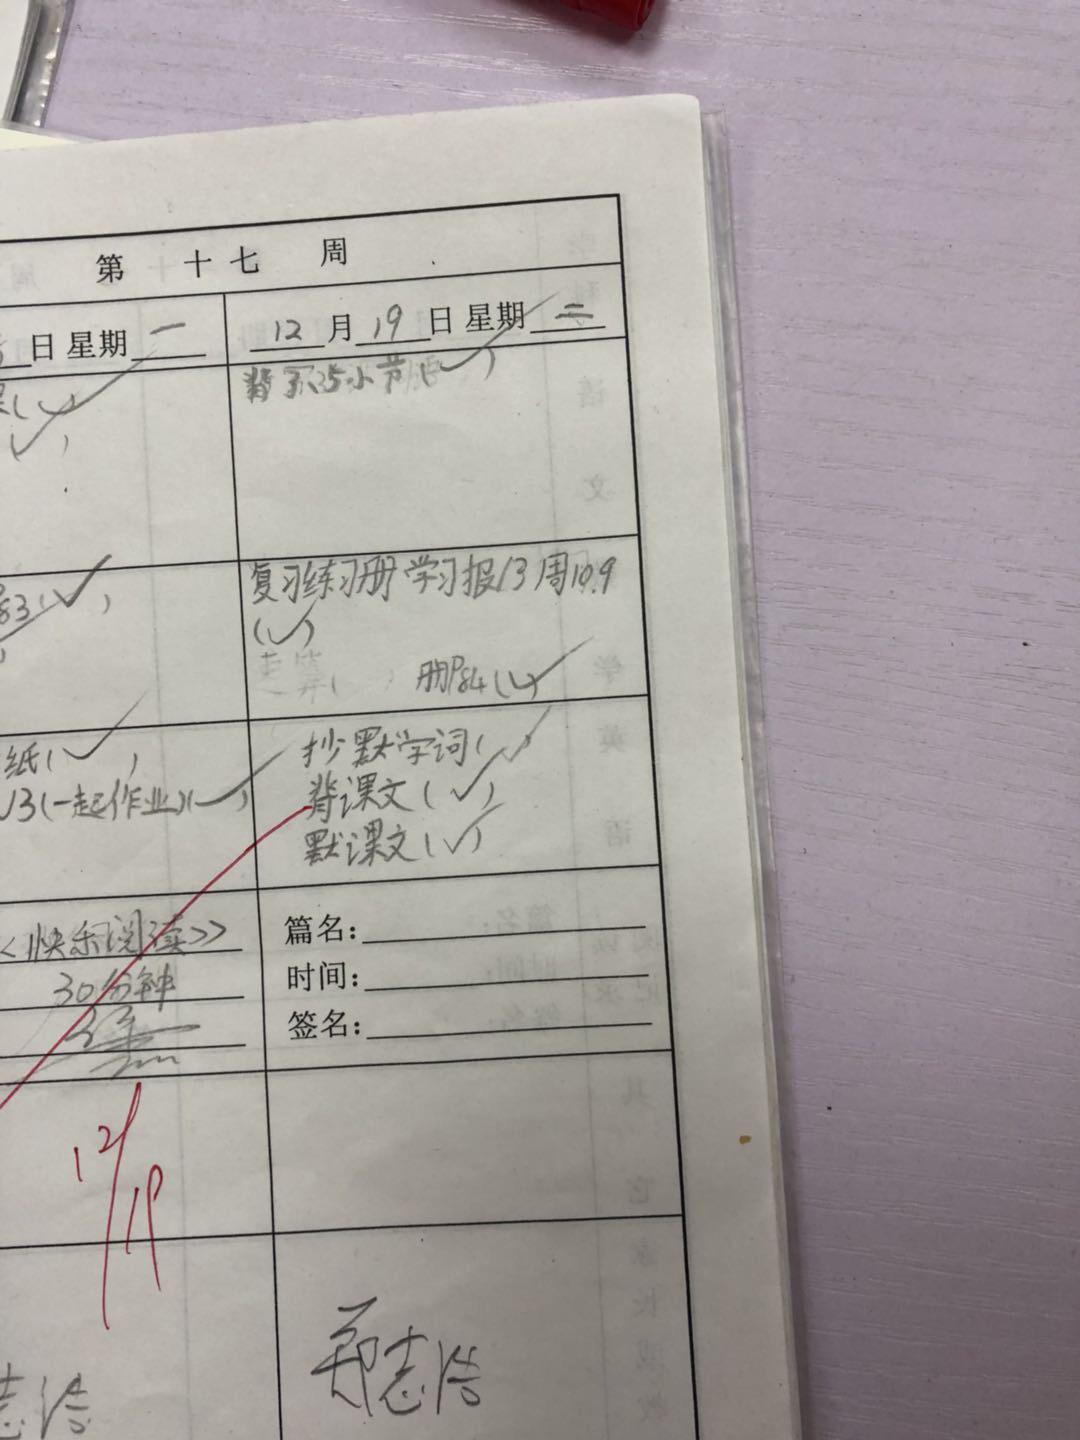 第 十七 周
日 星期 一
12 月 19 日 星期 二
背 小节(✓)
(✓)
83(✓)
复习练习册 学习报13周10.9
(✓)
册P84(✓)
纸(✓)
13(一起作业)(✓)
抄默字词(✓)
背课文(✓)
默课文(✓)
《快乐阅读》
30分钟
篇名:
时间:
签名:
12/19
志浩
郑志浩